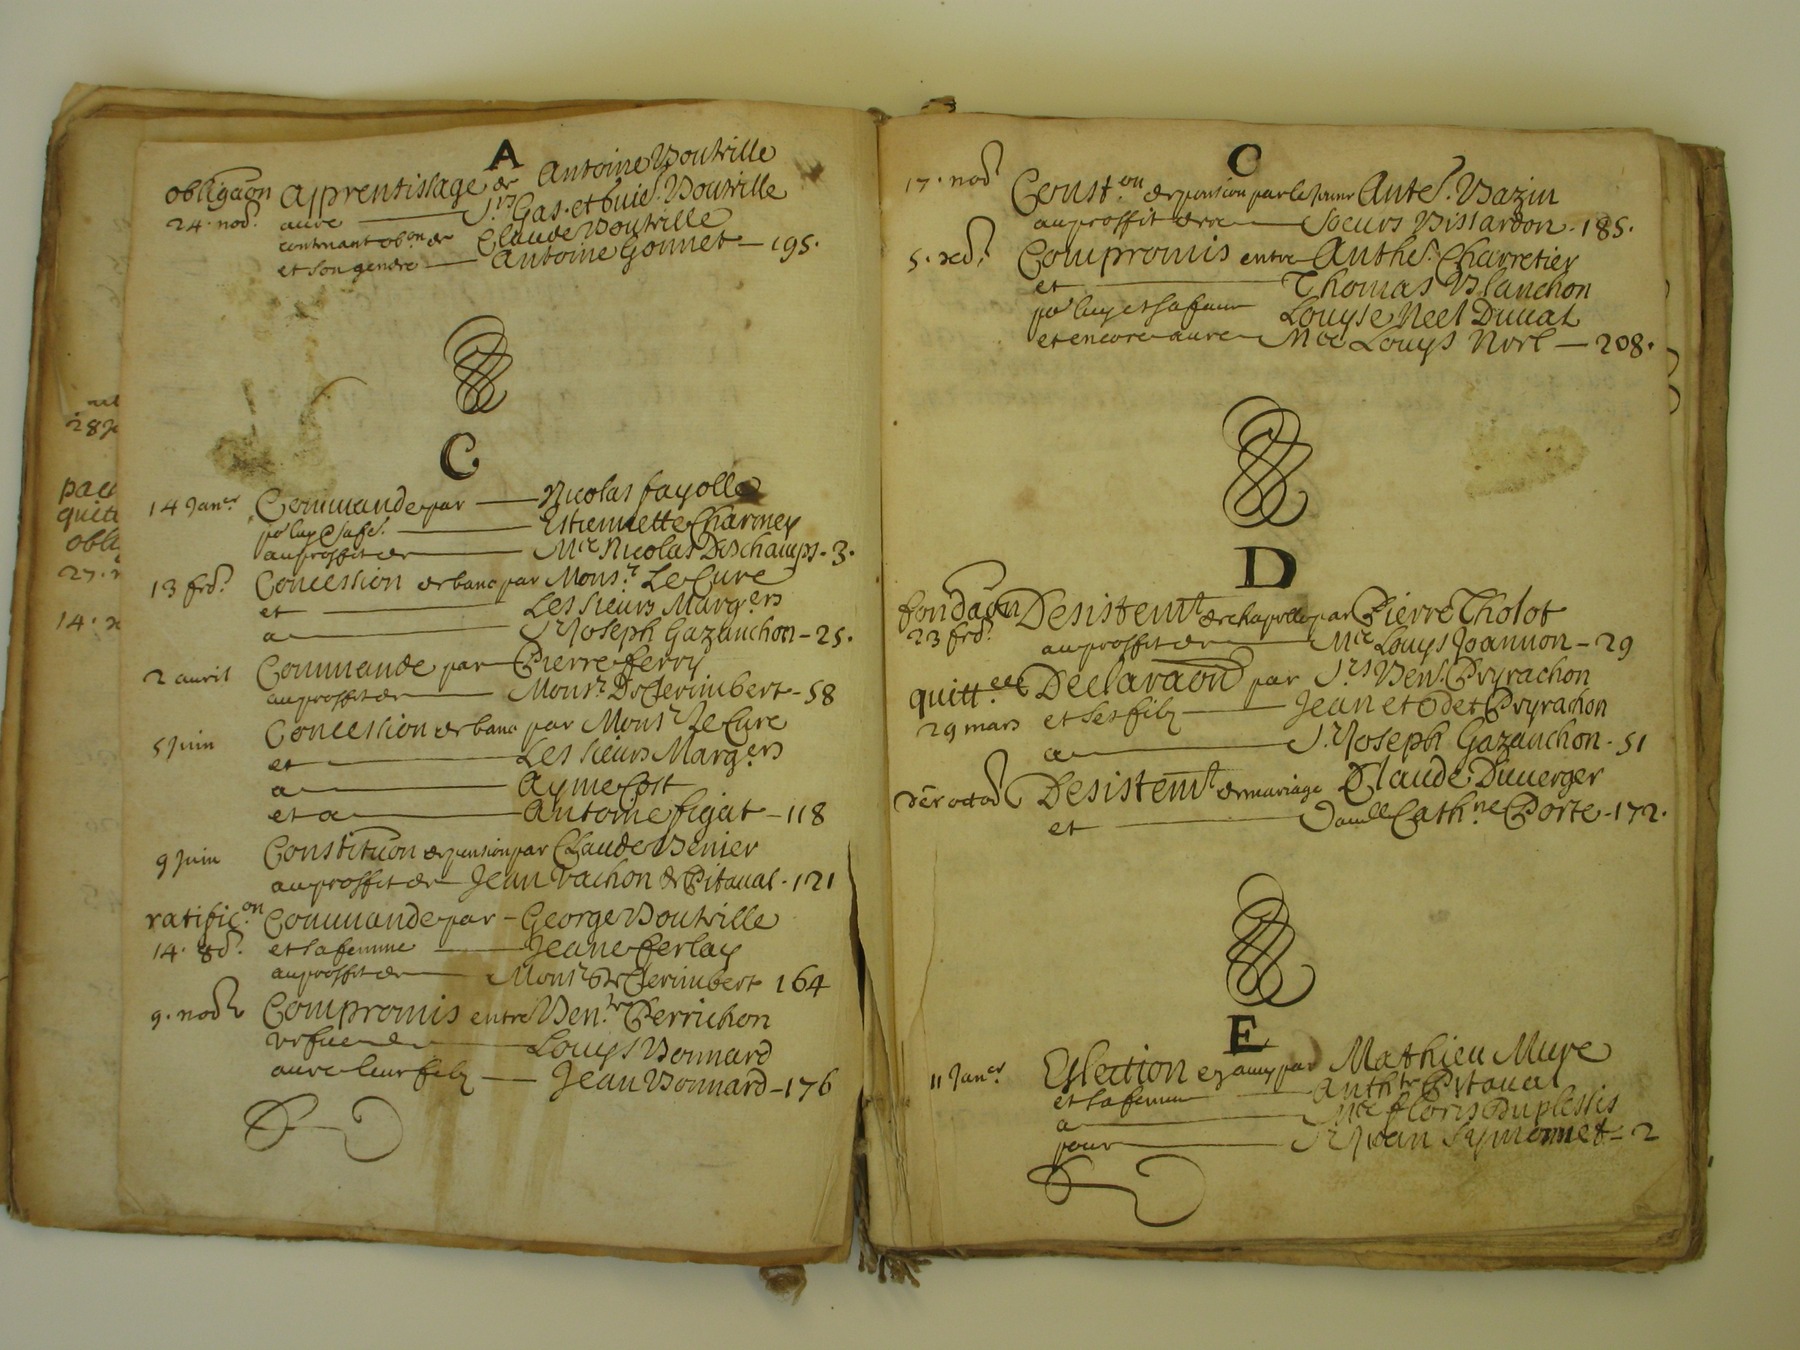 A
obligaon apprentissage de Antoine Boutville
24. nod. avec Srs Gas. et buis. Boutville
contenant obon de Claude Boutville
et son gendre Antoine Gonnet - 195.
C.
14 Janer Commande par Nicolas fayolle
pr luy & sa fe. Estiennette Charmey
au proffit de Mre Nicolas Deschamps - 3.
13 frd. Concession de banc par Monsr. Le Cure
et Les sieurs Margers
a Sr Joseph Gazanchon - 25.
2 avril Commande par Pierre ferry
au proffit de Monsr. De Jerimbert - 58
5 Juin Concession de banc par Monsr Le Cure
et Les sieurs Margers
a Ayme Cost
et a Antoine figat - 118
9 Juin Constituon de pension par Claude Benier
au proffit de Jean Vachon de Pitaval - 121
ratific.on Commande par - George Boutville
14. 8d. et sa femme Jeane Ferlay
au proffit de Monsr De Jerimbert 164
9. nod Compromis entre Ben.te Perrichon
vefue de Louys Bonnard
avec leur filz Jean Bonnard - 176
28
pac
quit
obli
27.
14.
C
17. nod Const.on de pension par le sieur Ante. Bazin
au proffit de Soeurs Bissardon - 185.
5. xd. Compromis entre Anthe. Charretier
et Thomas Blanchon
pr luy et sa femme Louyse Neel Duval
et encore avec Mre Louys Noel - 208.
D
fondaon Desistemt de chapelle par Pierre Tholot
23 frd. au proffit de Mre Louys Joannon - 29
quitt.ces Declaraon par Srs Ben. Peyrachon
29 mars et ses filz Jean et Odet Peyrachon
a Sr. Joseph Gazanchon - 51
der octod Desistemt de mariage Claude Duverger
et Damlle Cath.ne Porte - 172.
E
11 Janer. Eslection en amy par Mathieu Mure
et sa femme Anthte Pitaval
a Mre floris Duplessis
pour Sr Jean Symonnet - 2